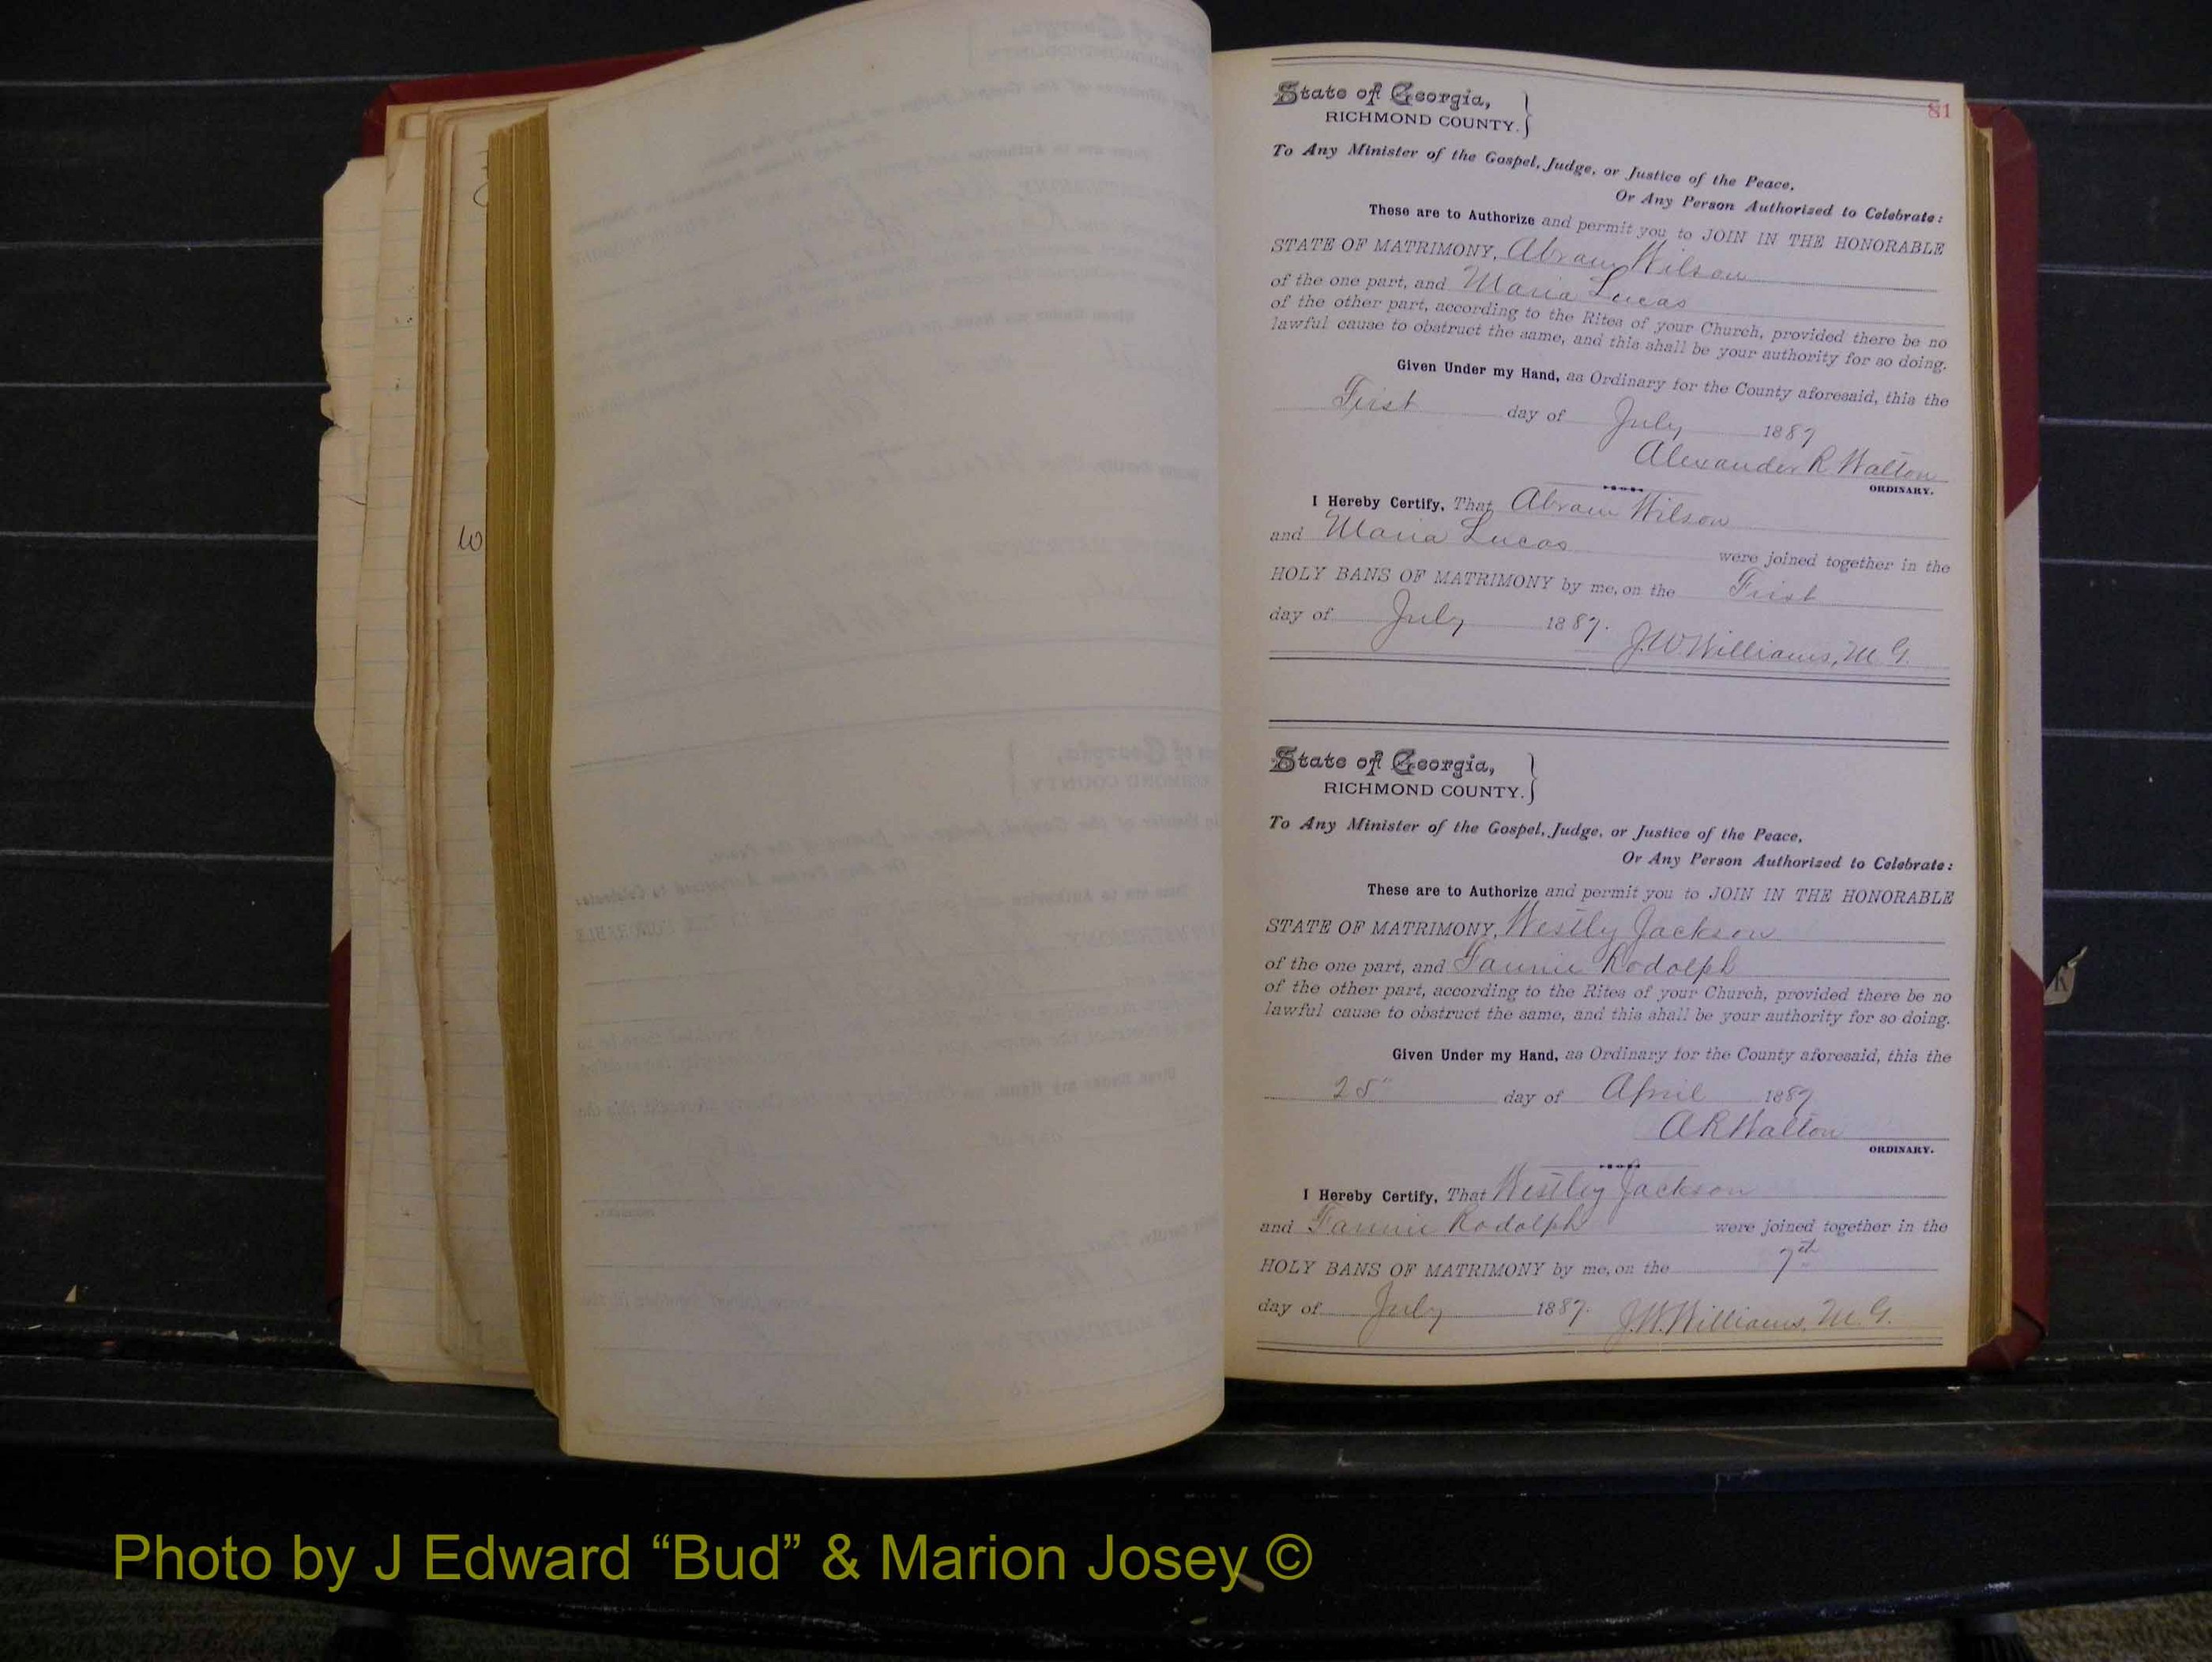 81
State of Georgia,
RICHMOND COUNTY.
To Any Minister of the Gospel, Judge, or Justice of the Peace,
Or Any Person Authorized to Celebrate:
These are to Authorize and permit you to JOIN IN THE HONORABLE
STATE OF MATRIMONY, Abram Wilson
of the one part, and Maria Lucas
of the other part, according to the Rites of your Church, provided there be no
lawful cause to obstruct the same, and this shall be your authority for so doing.
Given Under my Hand, as Ordinary for the County aforesaid, this the
First day of July 1887
Alexander R Walton
ORDINARY.
I Hereby Certify, That Abram Wilson
and Maria Lucas were joined together in the
HOLY BANS OF MATRIMONY by me, on the First
day of July 1887.
J.W. Williams, M.G.
State of Georgia,
RICHMOND COUNTY.
To Any Minister of the Gospel, Judge, or Justice of the Peace,
Or Any Person Authorized to Celebrate:
These are to Authorize and permit you to JOIN IN THE HONORABLE
STATE OF MATRIMONY, Westly Jackson
of the one part, and Fannie Rodolph
of the other part, according to the Rites of your Church, provided there be no
lawful cause to obstruct the same, and this shall be your authority for so doing.
Given Under my Hand, as Ordinary for the County aforesaid, this the
day of April 1887
A R Walton
ORDINARY.
I Hereby Certify, That Westley Jackson
and Fannie Rodolph were joined together in the
HOLY BANS OF MATRIMONY by me, on the 7th
day of July 1887.
J.W. Williams, M.G.
Photo by J Edward “Bud” & Marion Josey ©